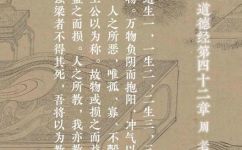 道德经第四十二章 周 老
道生一，一生二，二生三，三
物。万物负阴而抱阳，冲气以
人之所恶，唯孤、寡、不
王公以为称。故物或损之而
益之而损。人之所教，我亦教
强梁者不得其死，吾将以为